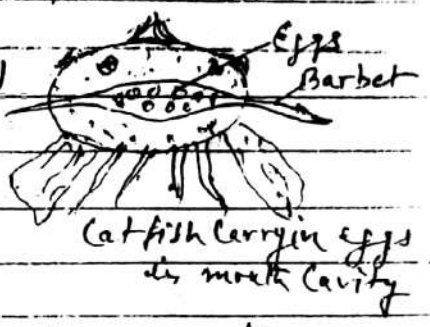 Eggs
Barbet
Catfish Carryin eggs
in mouth Cavity